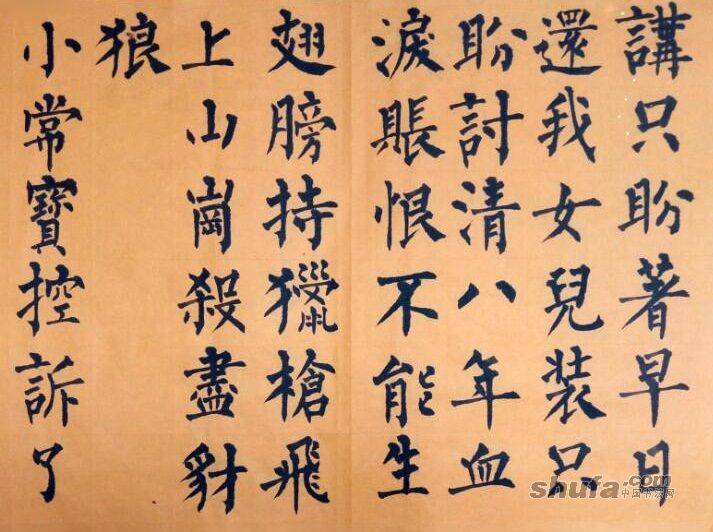 講只盼著早日
還我女兒装只
盼討清八年血
淚賬恨不能生
翅膀持獵槍飛
上山崗殺盡豺
狼
小常寶控訴了
shufa.com